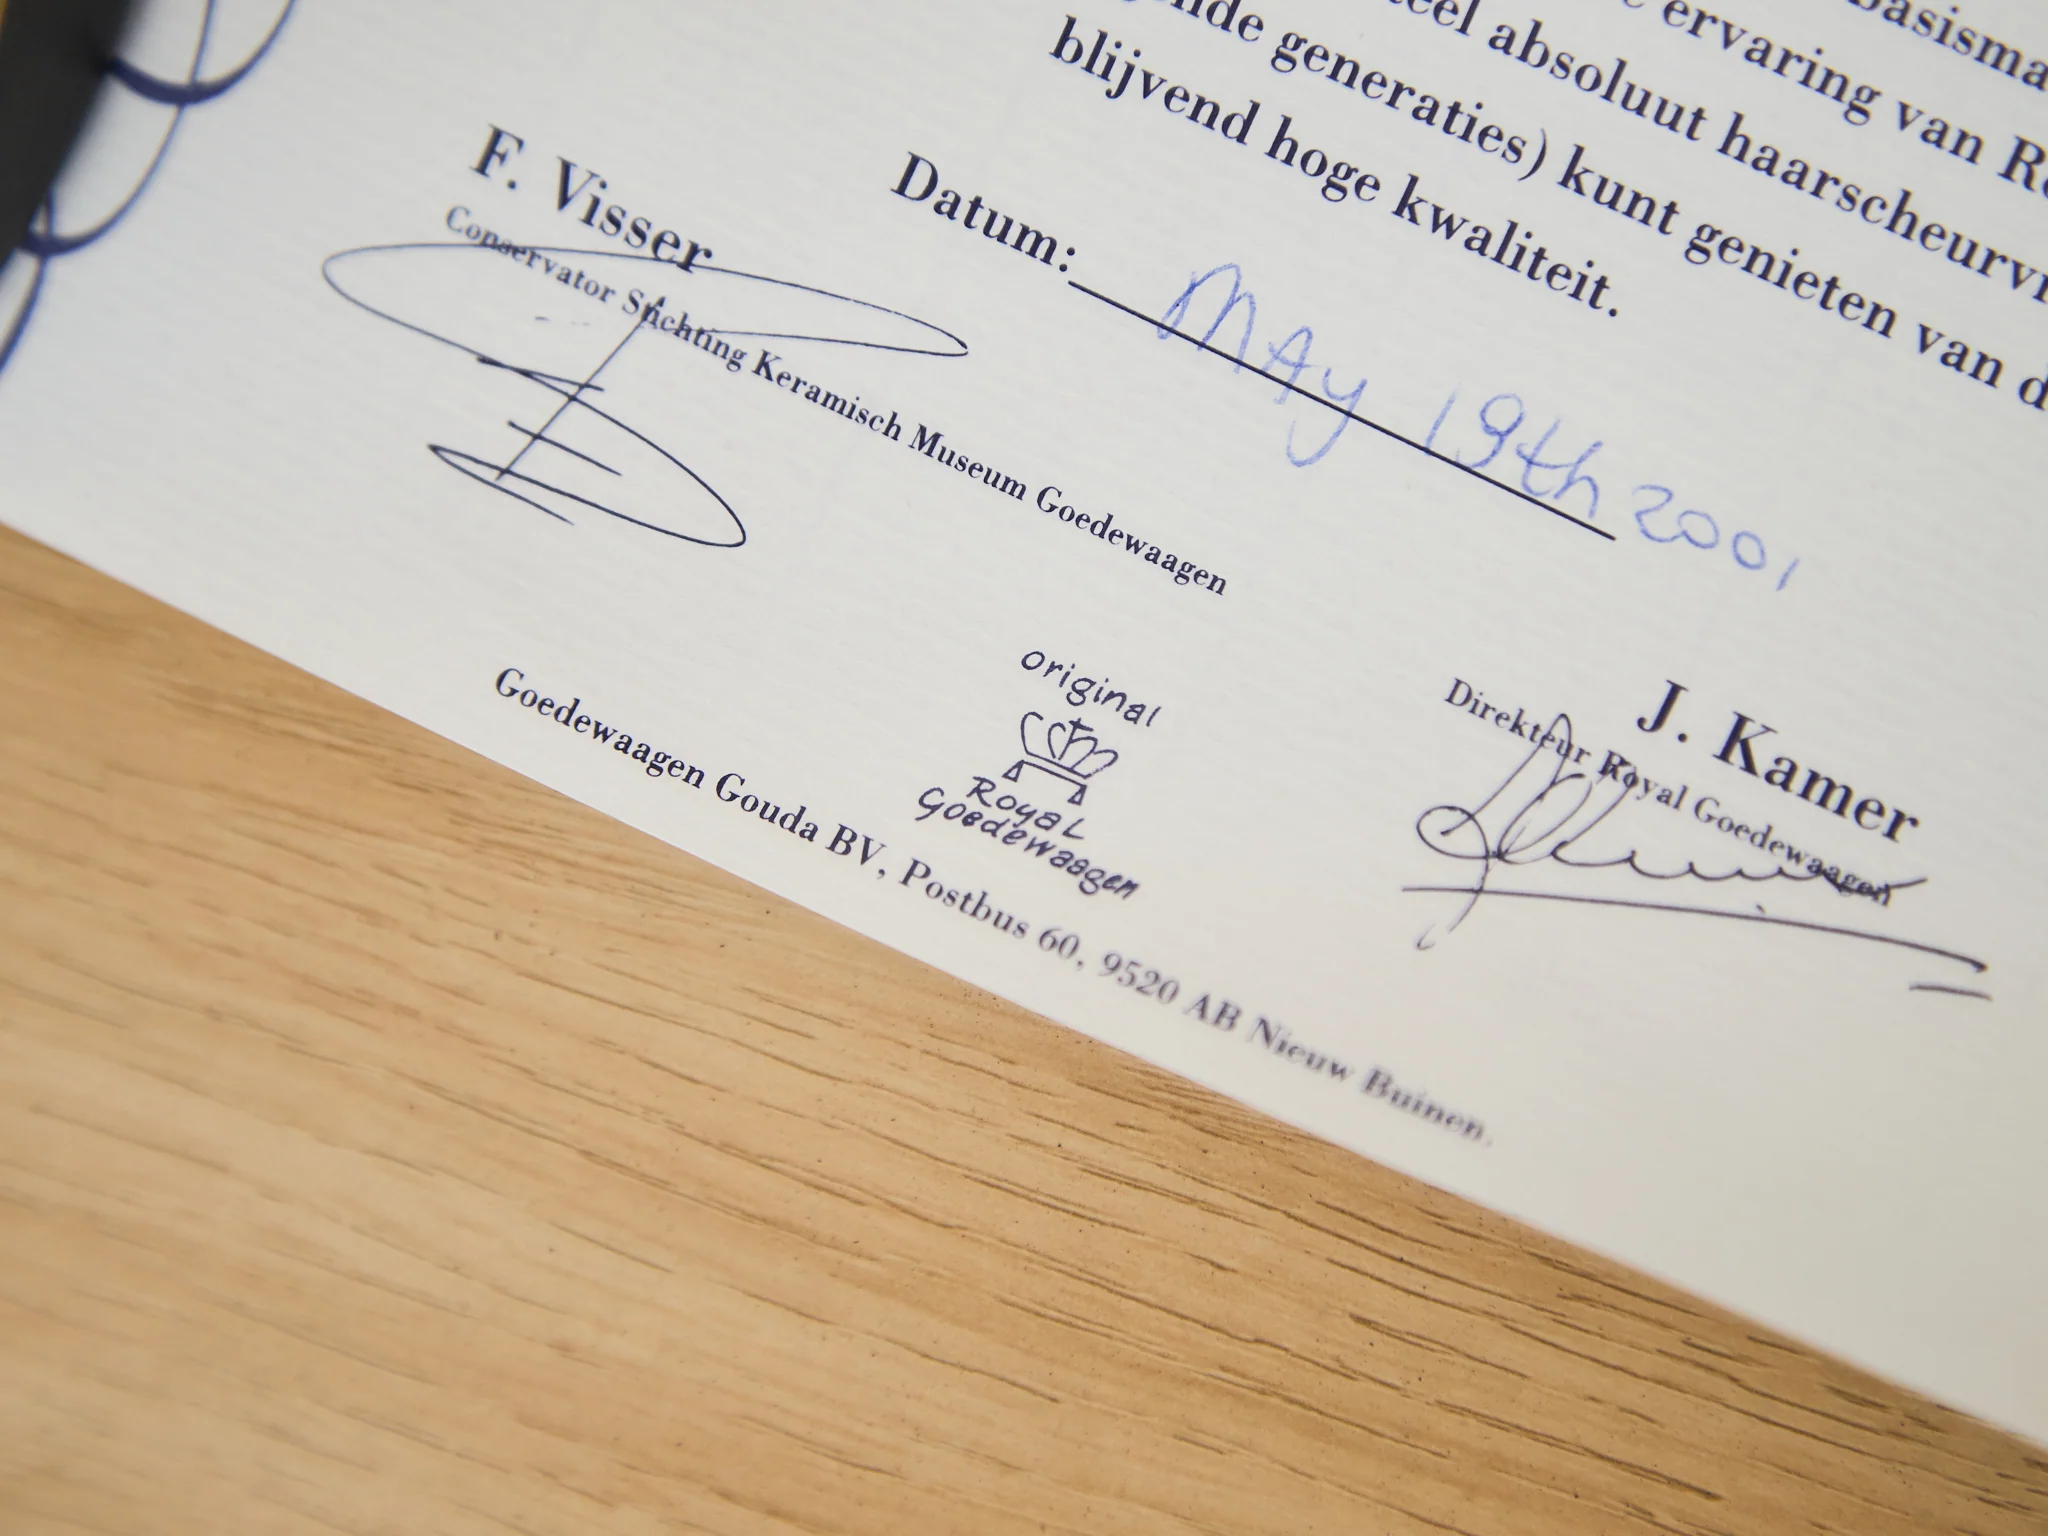 basisma
ervaring van R
teel absoluut haarscheurv
nde generaties) kunt genieten van d
blijvend hoge kwaliteit.
Datum: MAy 19th 2001
F. Visser
Conservator Stichting Keramisch Museum Goedewaagen
J. Kamer
Direkteur Royal Goedewaagen
original
Royal
Goedewaagen
Goedewaagen Gouda BV, Postbus 60, 9520 AB Nieuw Buinen.